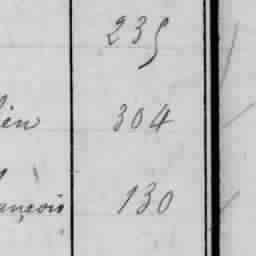 235
ien 304
ançois 130